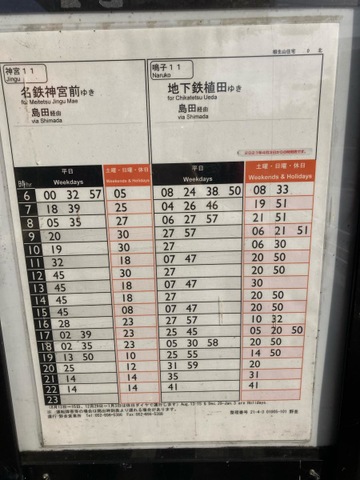 相生山住宅
神宮11
Jingu
名鉄神宮前ゆき
for Meitetsu Jingu Mae
島田経由
via Shimada
鳴子11
Naruko
地下鉄植田ゆき
for Chikatetsu Ueda
島田経由
via Shimada
時hr 平日 Weekdays 土曜・日曜・休日 Weekends & Holidays 平日 Weekdays 土曜・日曜・休日 Weekends & Holidays
6 00 32 57 05 08 24 38 50 08 33
7 18 39 25 04 26 46 19 51
8 05 35 27 06 27 57 21 51
9 20 30 27 57 06 21 51
10 19 30 30 06 30
11 32 18 07 47 20 50
12 45 30 27 20 50
13 45 18 07 47 30
14 45 18 27 20 50
15 45 08 07 47 20 50
16 28 23 27 57 10 32
17 02 39 23 25 45 05 20 50
18 02 35 23 05 30 58 20 50
19 13 50 10 25 55 14 50
20 25 12 31 59 20
21 14 14 35 31
22 14 14 41 41
23